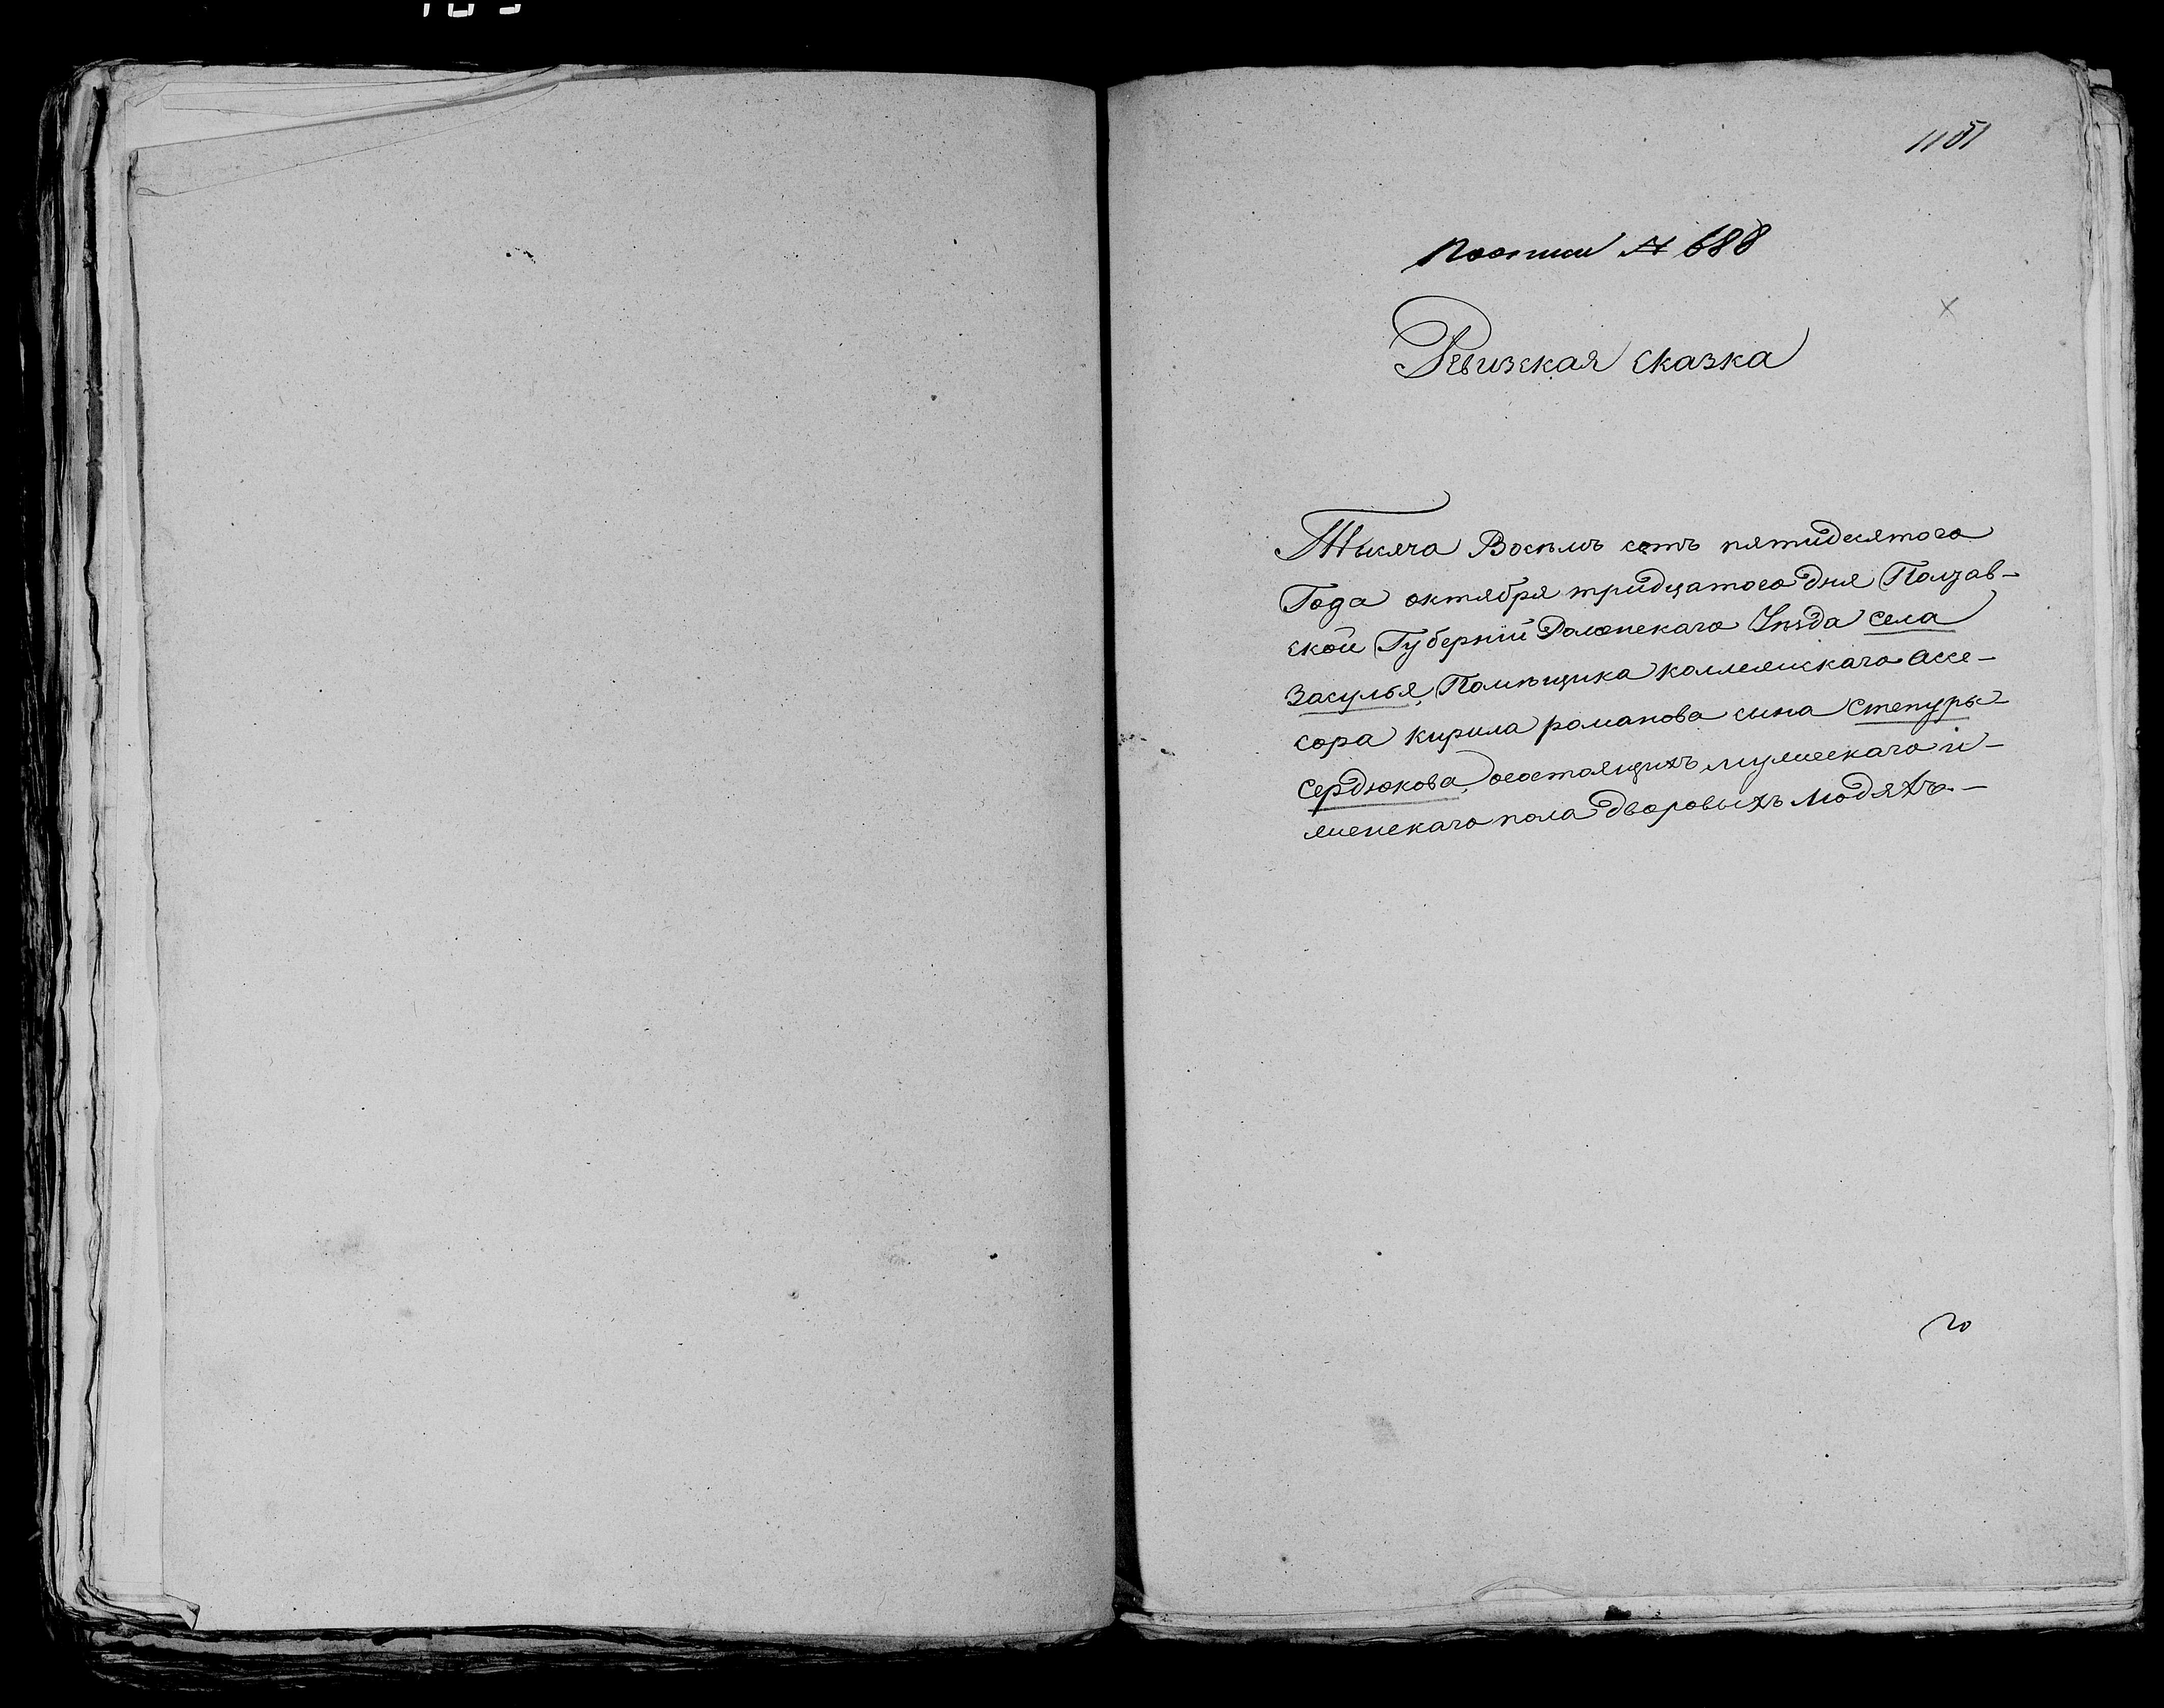 1151
По описи № 688
Ревизская сказка
Тысяча Восемь сотъ пятидесятого
Года октября тридцатого дня Полтав-
ской Губерніи Роменскаго Уѣзда села
Засулья, Помѣщика коллежскаго ассе-
сора кирила романова сина Степуры
Сердюкова, осостоящихъ мужескаго и-
женскаго пола дворовыхъ людяхъ.-